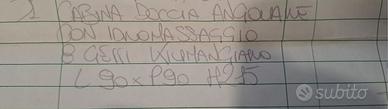 1 CABINA DOCCIA ANGOLARE
CON IDROMASSAGGIO
8 GETTI KILIMANGIARO
L 90 x P90 H215
subito